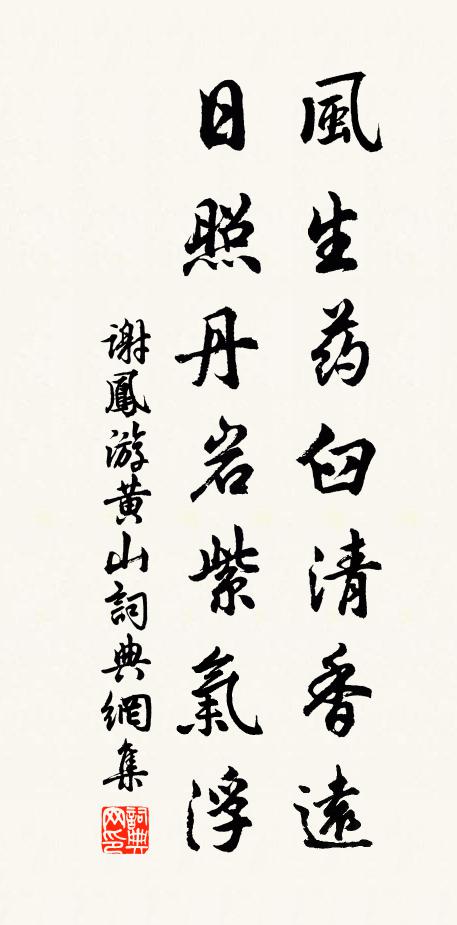 風生药臼清香遠
日照丹岩紫氣浮
謝鳳游黄山詞典網集
詞典
网印